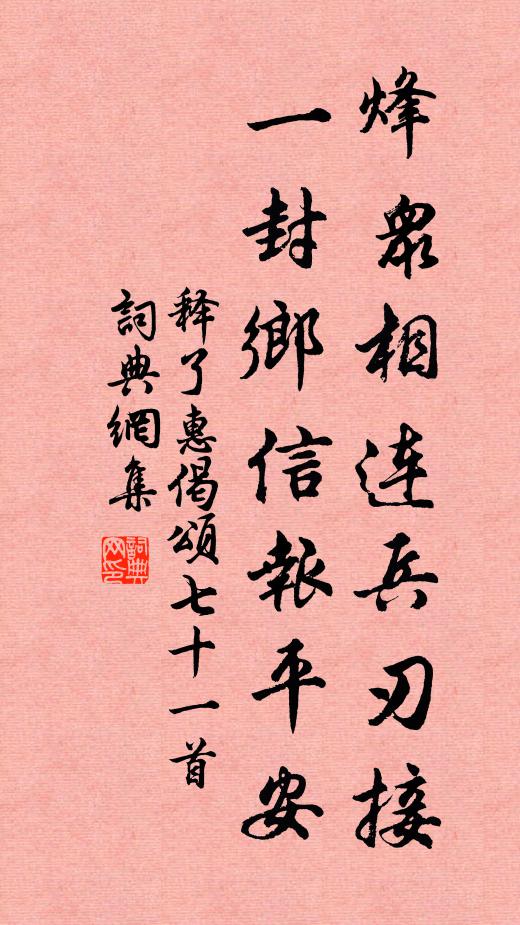 烽众相连兵刃接
一封鄉信報平安
释了惠偈頌七十一首
詞典網集
詞典网印